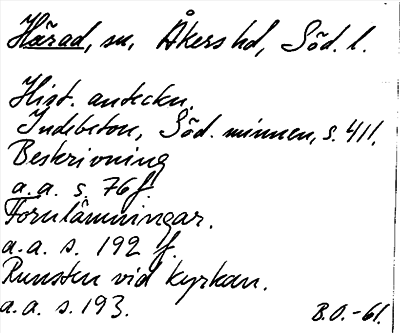 Härad, sn, Åkers hd, Söd. l.
Hist. anteckn.
Indebetou, Söd. minnen, s. 411.
Beskrivning
a.a. s. 76 f.
Fornlämningar.
a.a. s. 192 f.
Runsten vid kyrkan.
a.a. s. 193.
B.O.-61.